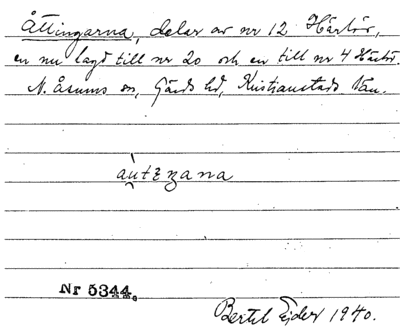 Åttingarna, delar av nr 12 Härlöv,
en nu lagd till nr 20 och en till nr 4 Härlöv.
N. Åsums sn, Gärds hd, Kristianstads län.
àutɛŋana
Nr 5344.
Bertil Ejder 1940.